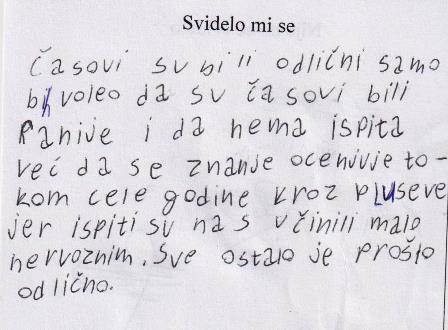 Svidelo mi se
Časovi su bili odlični samo
bih voleo da su časovi bili
Ranije i da nema ispita
već da se znanje ocenjuje to-
kom cele godine kroz pluseve
jer ispiti su nas učinili malo
nervoznim. Sve ostalo je prošlo
odlično.